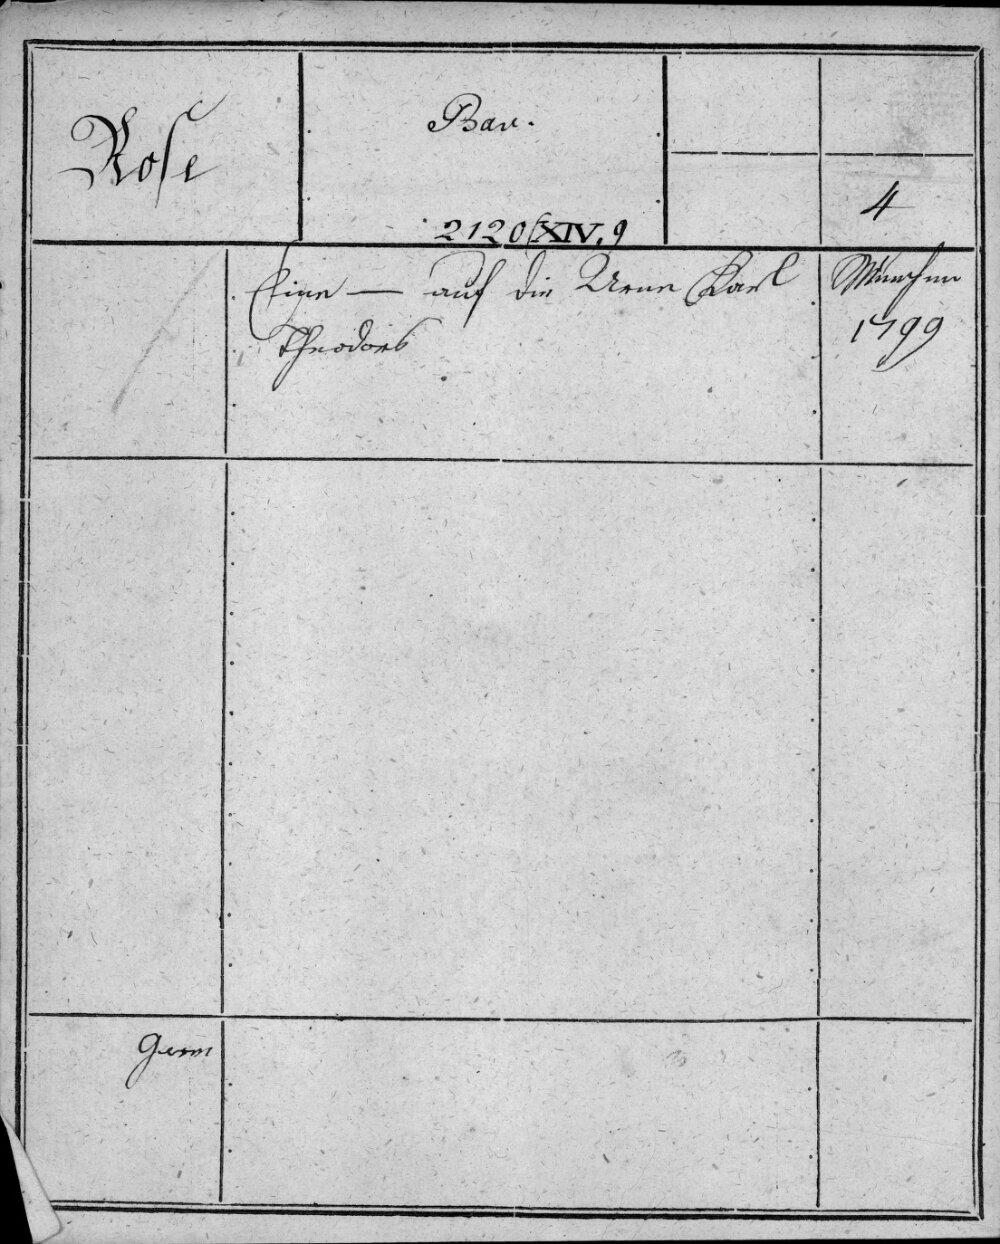 Rose
Bav.
2120/XIV,9
4
Eine — auf die Urne Karl
Theodors
München
1799
Germ